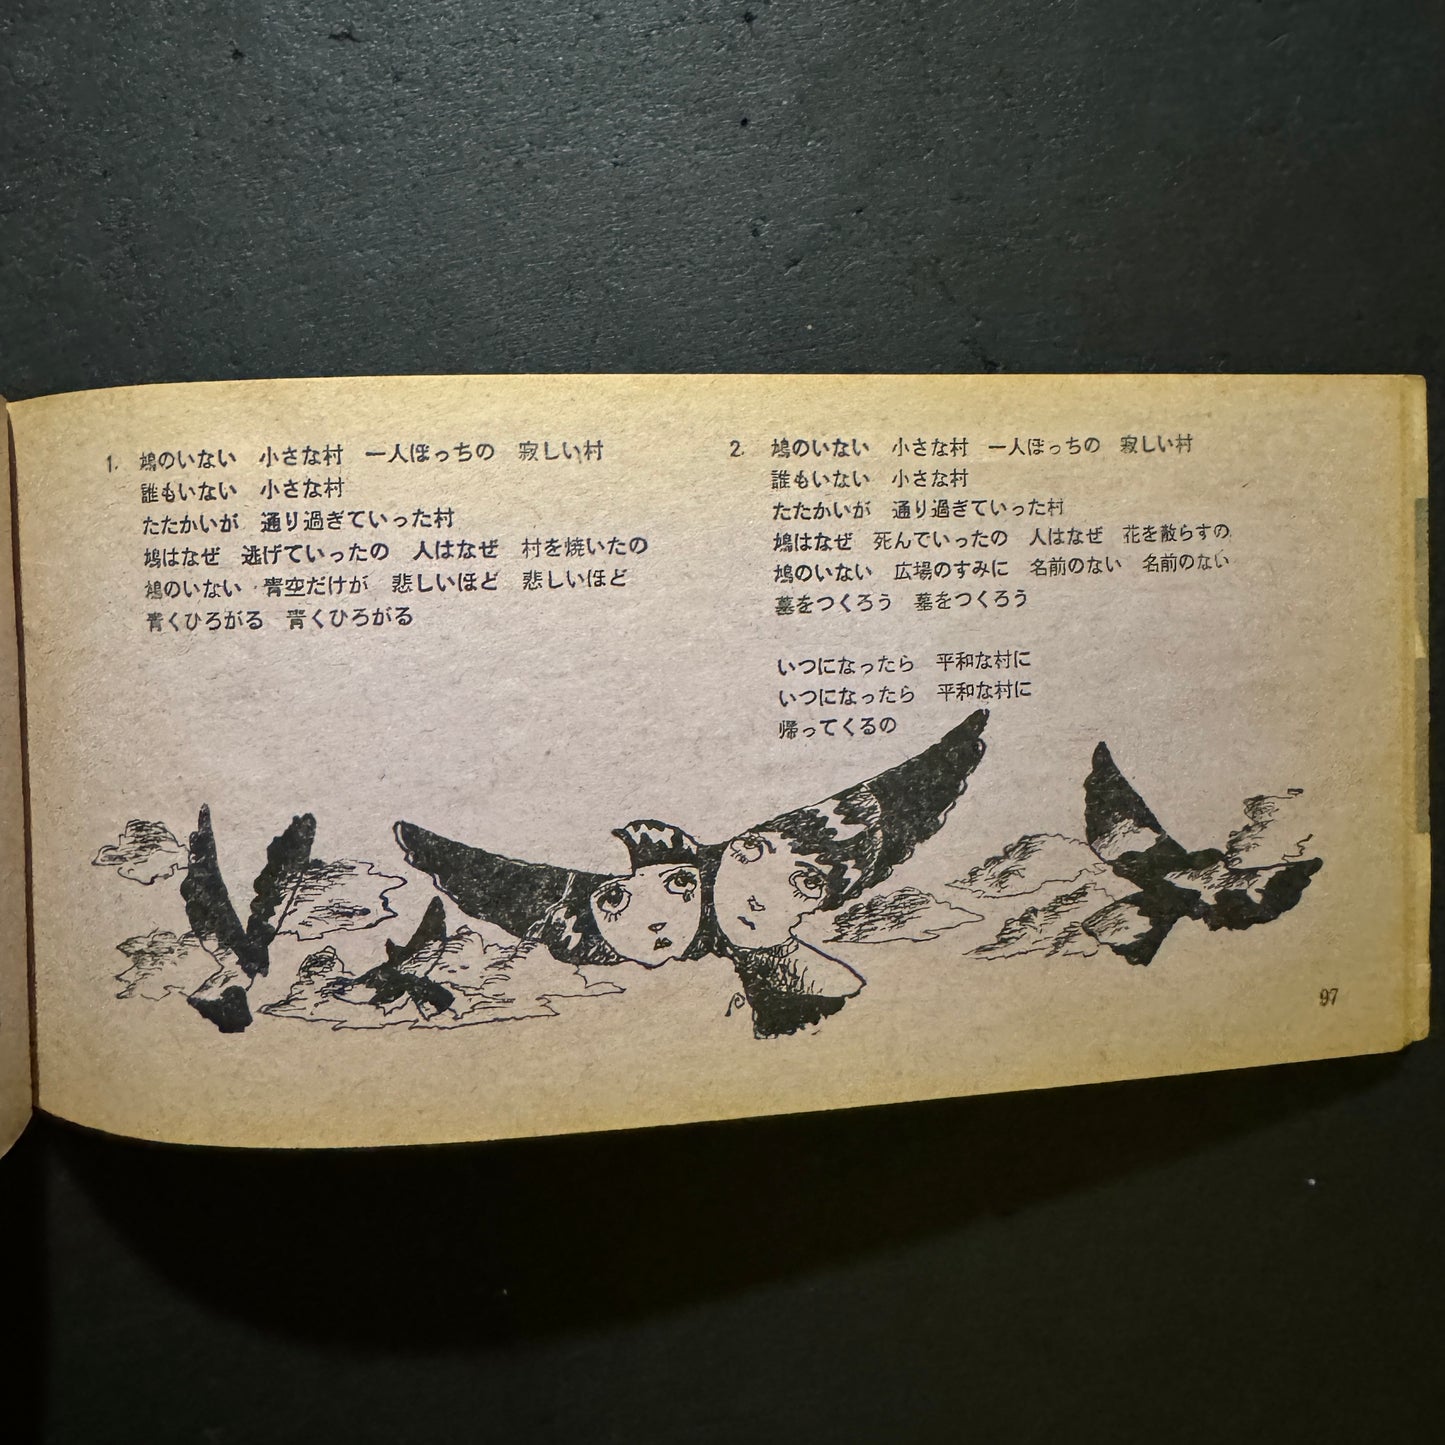 1. 鳩のいない　小さな村　一人ぼっちの　寂しい村
誰もいない　小さな村
たたかいが　通り過ぎていった村
鳩はなぜ　逃げていったの　人はなぜ　村を焼いたの
鳩のいない　青空だけが　悲しいほど　悲しいほど
青くひろがる　青くひろがる
2. 鳩のいない　小さな村　一人ぼっちの　寂しい村
誰もいない　小さな村
たたかいが　通り過ぎていった村
鳩はなぜ　死んでいったの　人はなぜ　花を散らすの
鳩のいない　広場のすみに　名前のない　名前のない
墓をつくろう　墓をつくろう
いつになったら　平和な村に
いつになったら　平和な村に
帰ってくるの
97